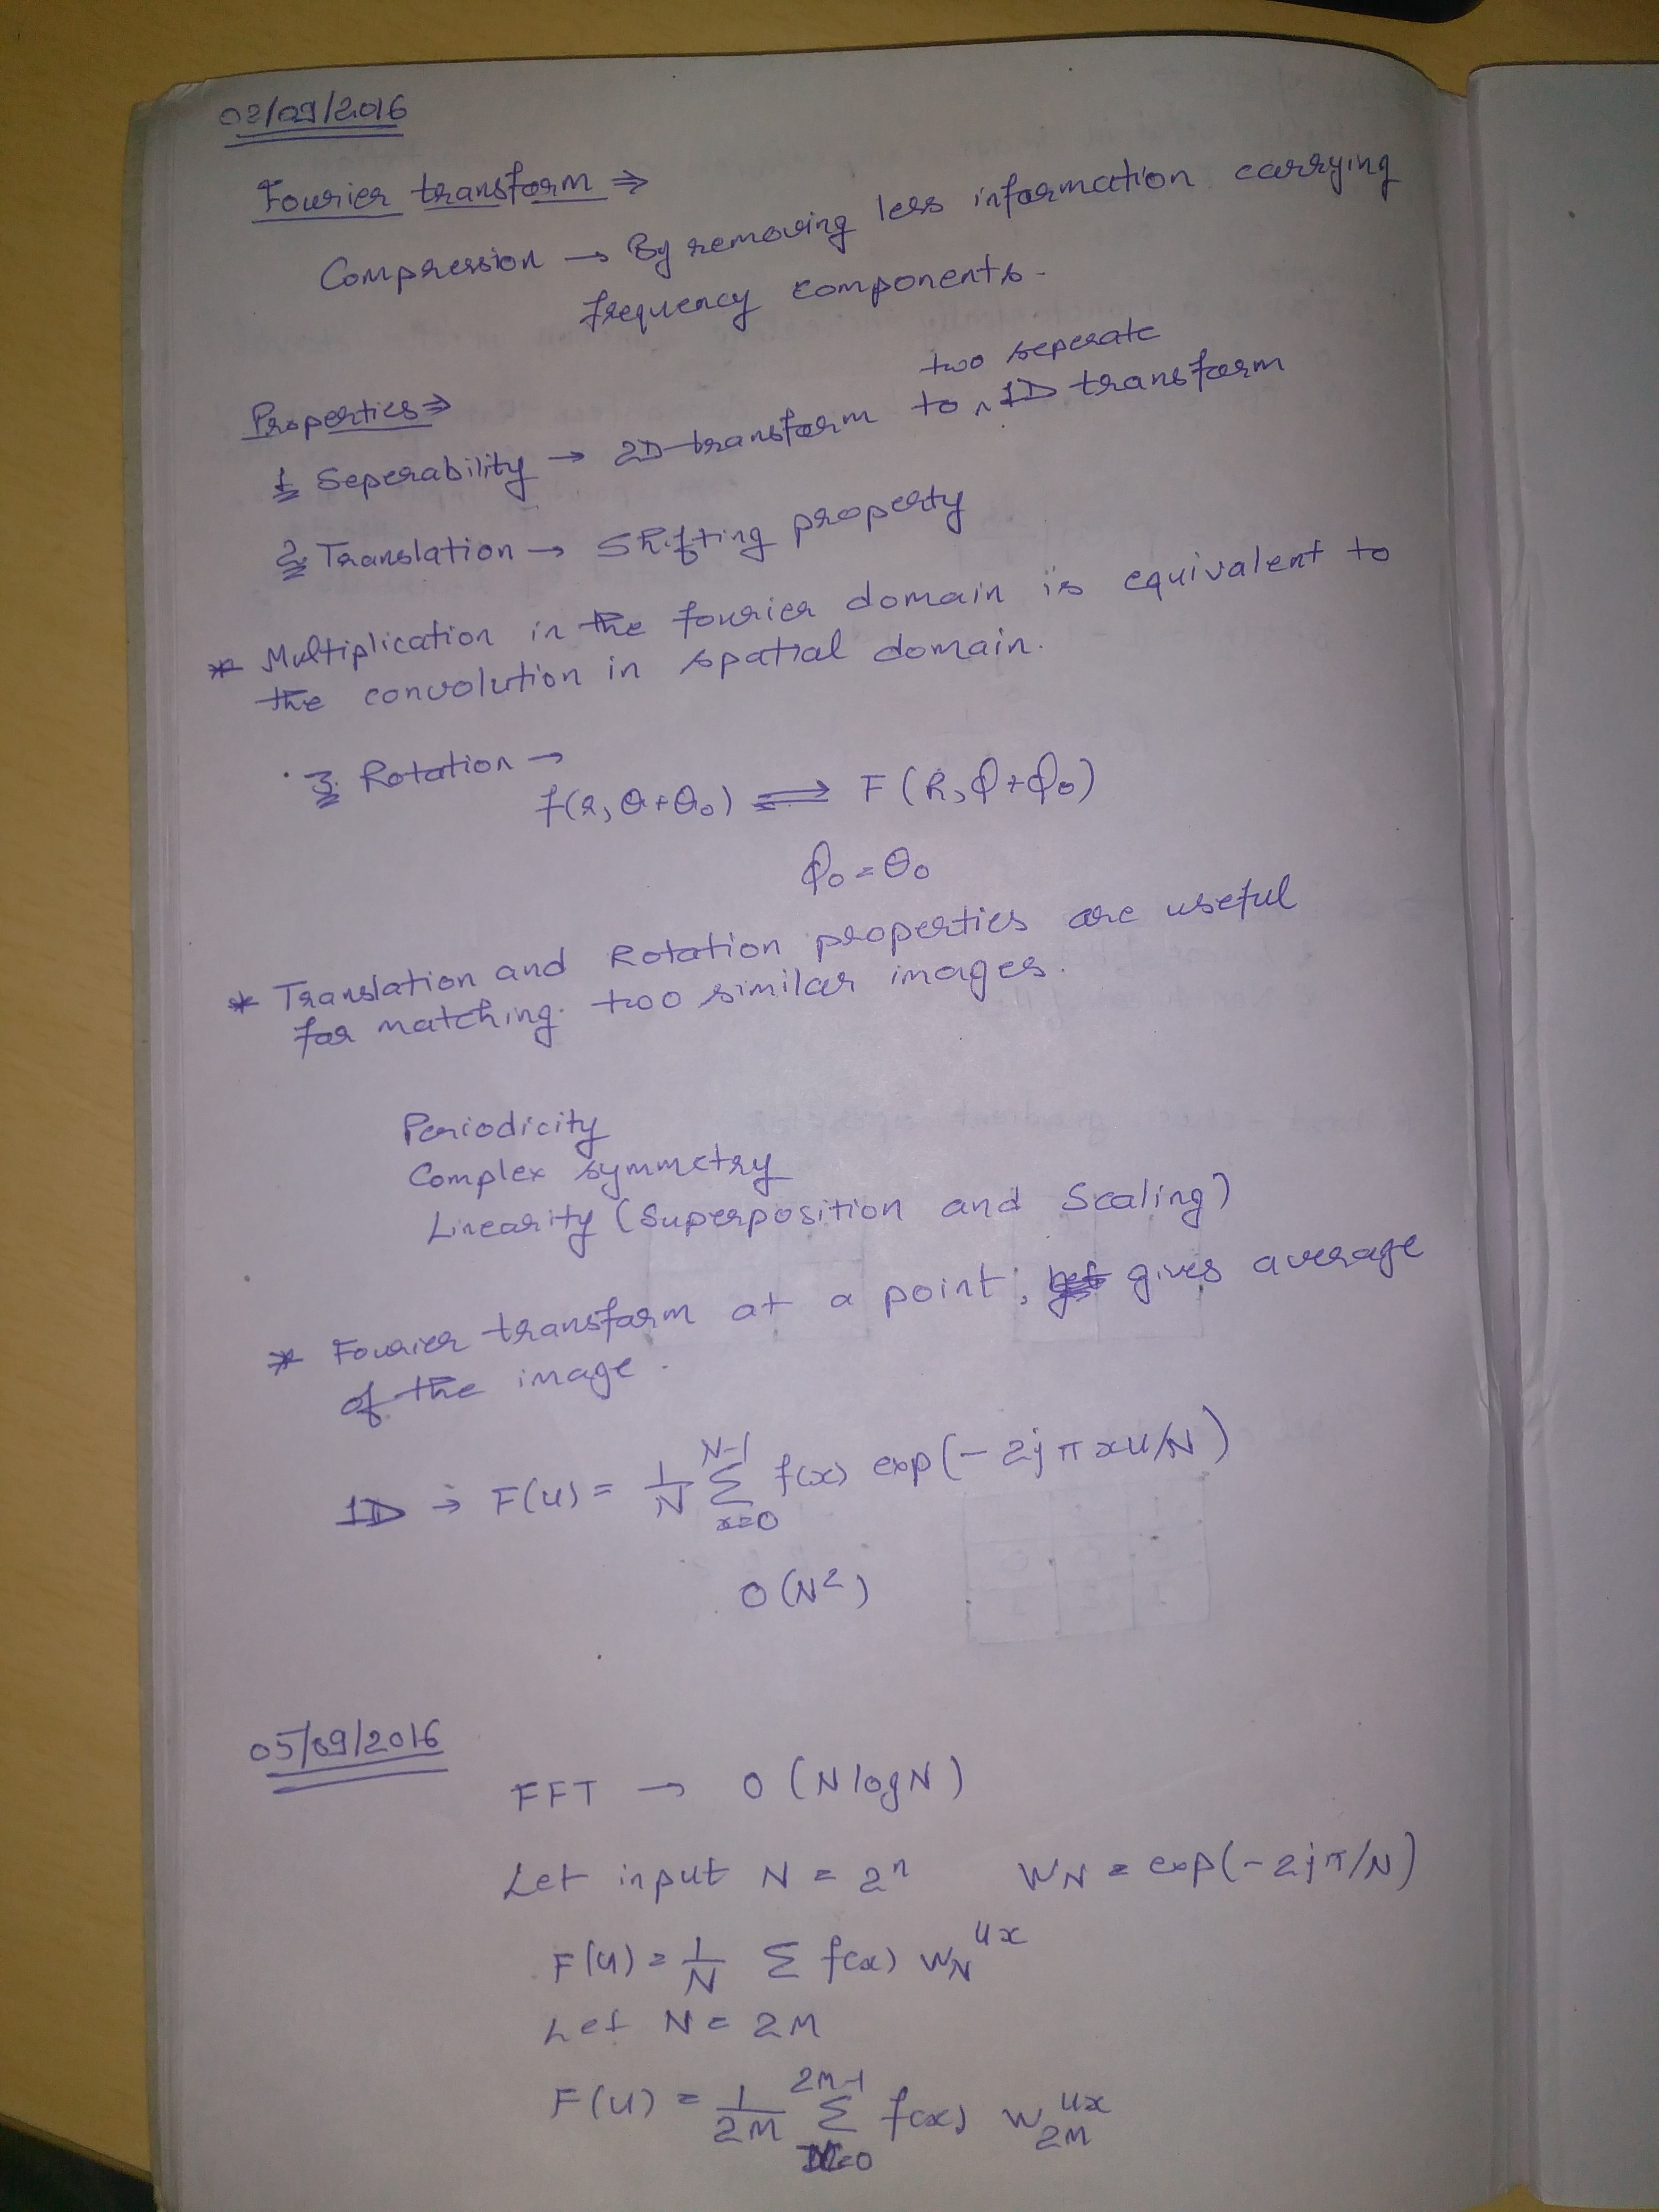 02/09/2016
Fourier transform ⇒
Compression → By removing less information carrying
frequency components.
Properties ⇒
two seperate
1. Seperability → 2D-transform to ^ 1D transform
2. Translation → Shifting property
* Multiplication in the fourier domain is equivalent to
the convolution in spatial domain.
3. Rotation →
f(r, θ+θ₀) ⇌ F(R, ϕ+ϕ₀)
ϕ₀ = θ₀
* Translation and Rotation properties are useful
for matching. two similar images.
Periodicity
Complex symmetry
Linearity (Superposition and Scaling)
* Fourier transform at a point, gives average
of the image.
1D → F(u) = 1/N Σ_{x=0}^{N-1} f(x) exp(-2jπxu/N)
O(N²)
05/09/2016
FFT → O(N log N)
Let input N = 2ⁿ W_N = exp(-2jπ/N)
F(u) = 1/N Σ f(x) W_N^{ux}
Let N = 2M
F(u) = 1/2M Σ_{x=0}^{2M-1} f(x) W_{2M}^{ux}